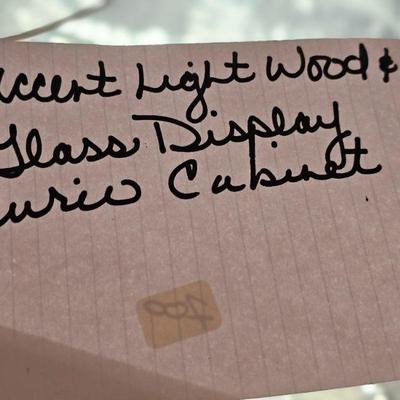 Accent Light Wood &
Glass Display
Curio Cabinet